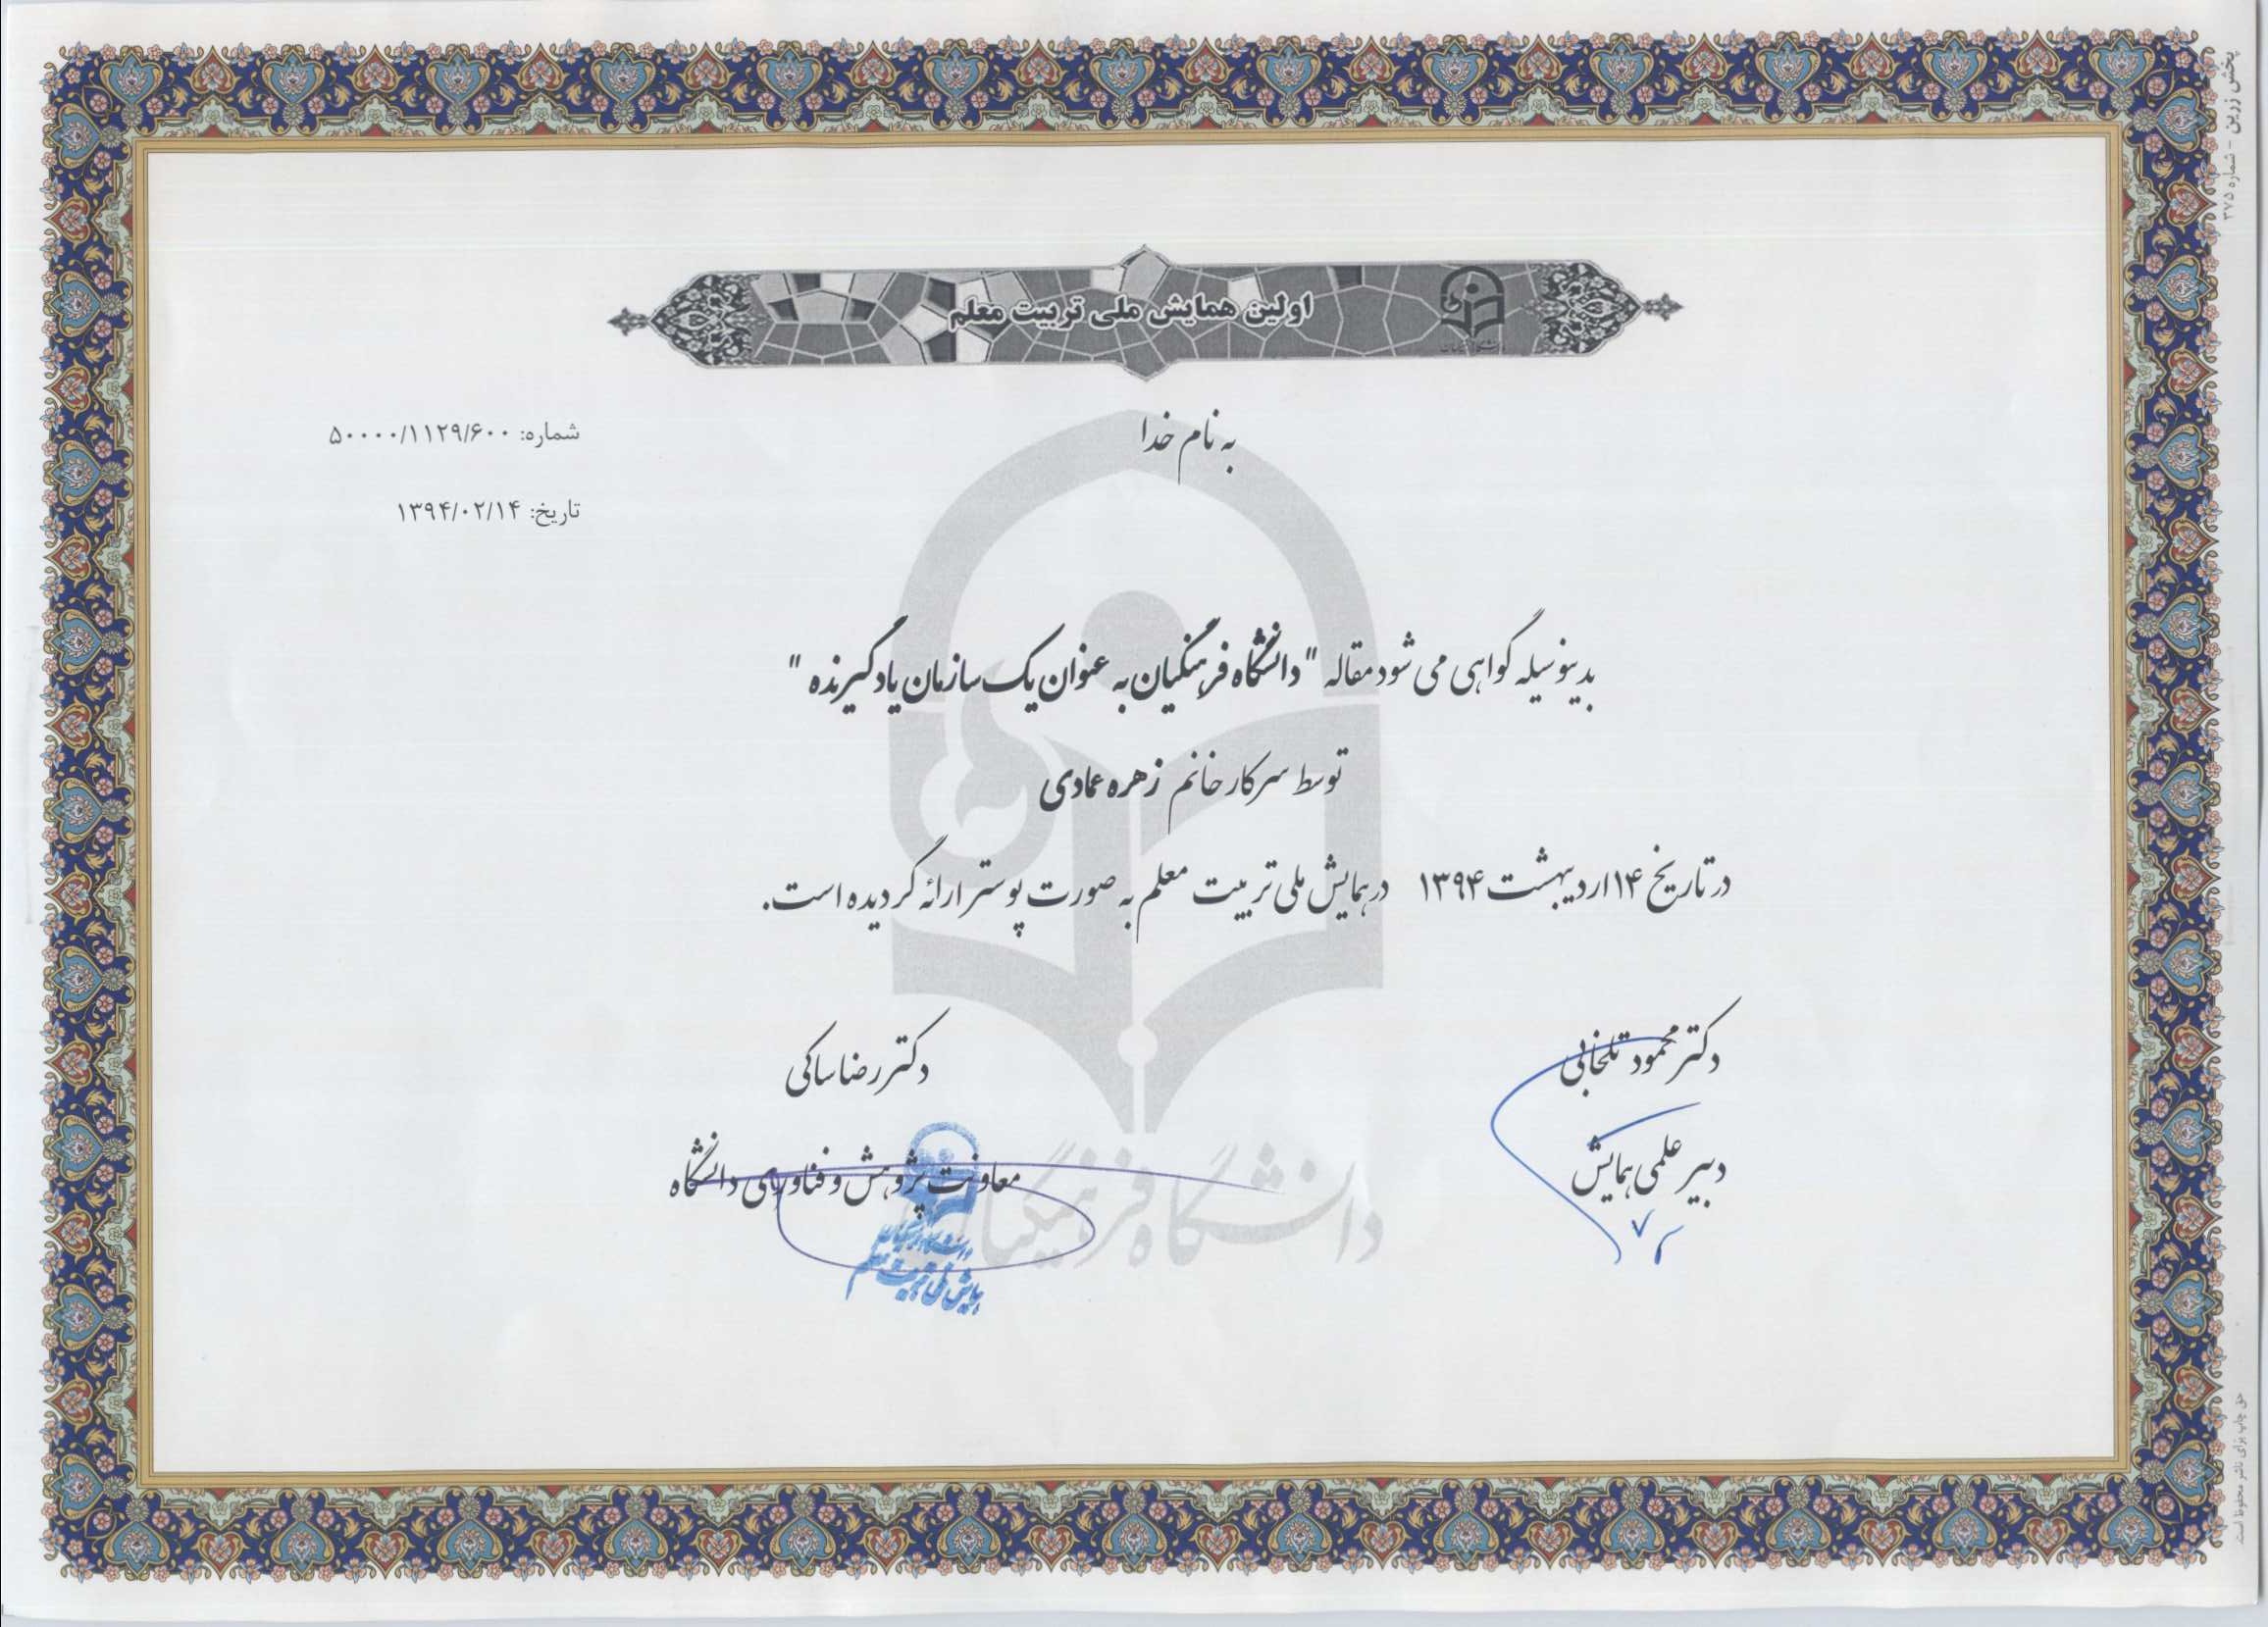 اولین همایش ملی تربیت معلم
به نام خدا
شماره: ۵۰۰۰۰/۱۱۲۹/۶۰۰
تاریخ: ۱۳۹۴/۰۲/۱۴
بدینوسیله گواهی می شود مقاله "دانشگاه فرهنگیان به عنوان یک سازمان یادگیرنده"
توسط سرکار خانم زهره عمادی
در تاریخ ۱۴ اردیبهشت ۱۳۹۴ در همایش ملی تربیت معلم به صورت پوستر ارائه گردیده است.
دکتر محمود تلخابی
دبیر علمی همایش
دکتر رضا ساکی
معاونت پژوهش و فناوری دانشگاه
دانشگاه فرهنگیان
همایش ملی تربیت معلم
دانشگاه فرهنگیان
پخش زرین - شماره ۳۷۵
حق چاپ برای ناشر محفوظ است